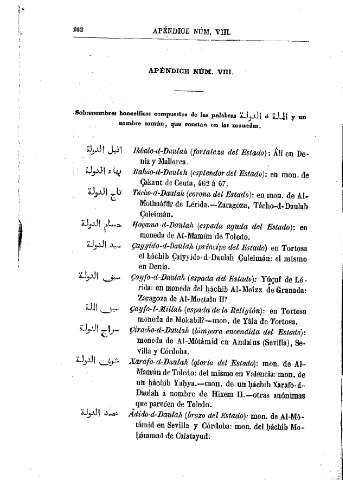 262 APÉNDICE NÚM. VIII.
APÉNDICE NÚM. VIII.
Sobrenombres honoríficos compuestos de las palabras الملة ó الدولة y un
nombre común, que constan en las monedas.
اقبل الدولة Ikbalo-d-Daulah (fortaleza del Estado): Áli en De-
nia y Mallorca.
بهاء الدولة Bahio-d-Daulah (esplendor del Estado): en mon. de
Çakaut de Ceuta, 462 á 67.
تاج الدولة Tácho-d-Daulah (corona del Estado): en mon. de Al-
Mothaáffir de Lérida.—Zaragoza, Tácho-d-Daulah
Çuleimán.
حسام الدولة Hoçamo-d-Daulah (espada aguda del Estado): en
moneda de Al-Mamún de Toledo.
سيد الدولة Çayyido-d-Daulah (príncipe del Estado) en Tortosa
el háchib Çayyido-d-Daulah Çuleimán: el mismo
en Denia.
سيف الدولة Çayfo-d-Daulah (espada del Estado): Yúçuf de Lé-
rida: en moneda del háchib Al-Moizz de Granada:
Zaragoza de Al-Mostaín II?
سيف الملة Çayfo-l-Millah (espada de la Religión): en Tortosa
moneda de Mokabil?—mon. de Yála de Tortosa.
سراج الدولة Çiracho-d-Daulah (lámpara encendida del Estado):
moneda de Al-Mótámid en Andalus (Sevilla), Se-
villa y Córdoba.
شرف الدولة Xarafo-d-Daulah (gloria del Estado): mon. de Al-
Mamún de Toledo: del mismo en Valencia: mon. de
un háchib Yahya.—mon. de un háchib Xarafo-d-
Daulah á nombre de Hixem II.—otras anónimas
que parecen de Toledo.
عضد الدولة Ádido-d-Daulah (brazo del Estado): mon. de Al-Mó-
támid en Sevilla y Córdoba: mon. del háchib Mo-
hámmad de Calatayud.